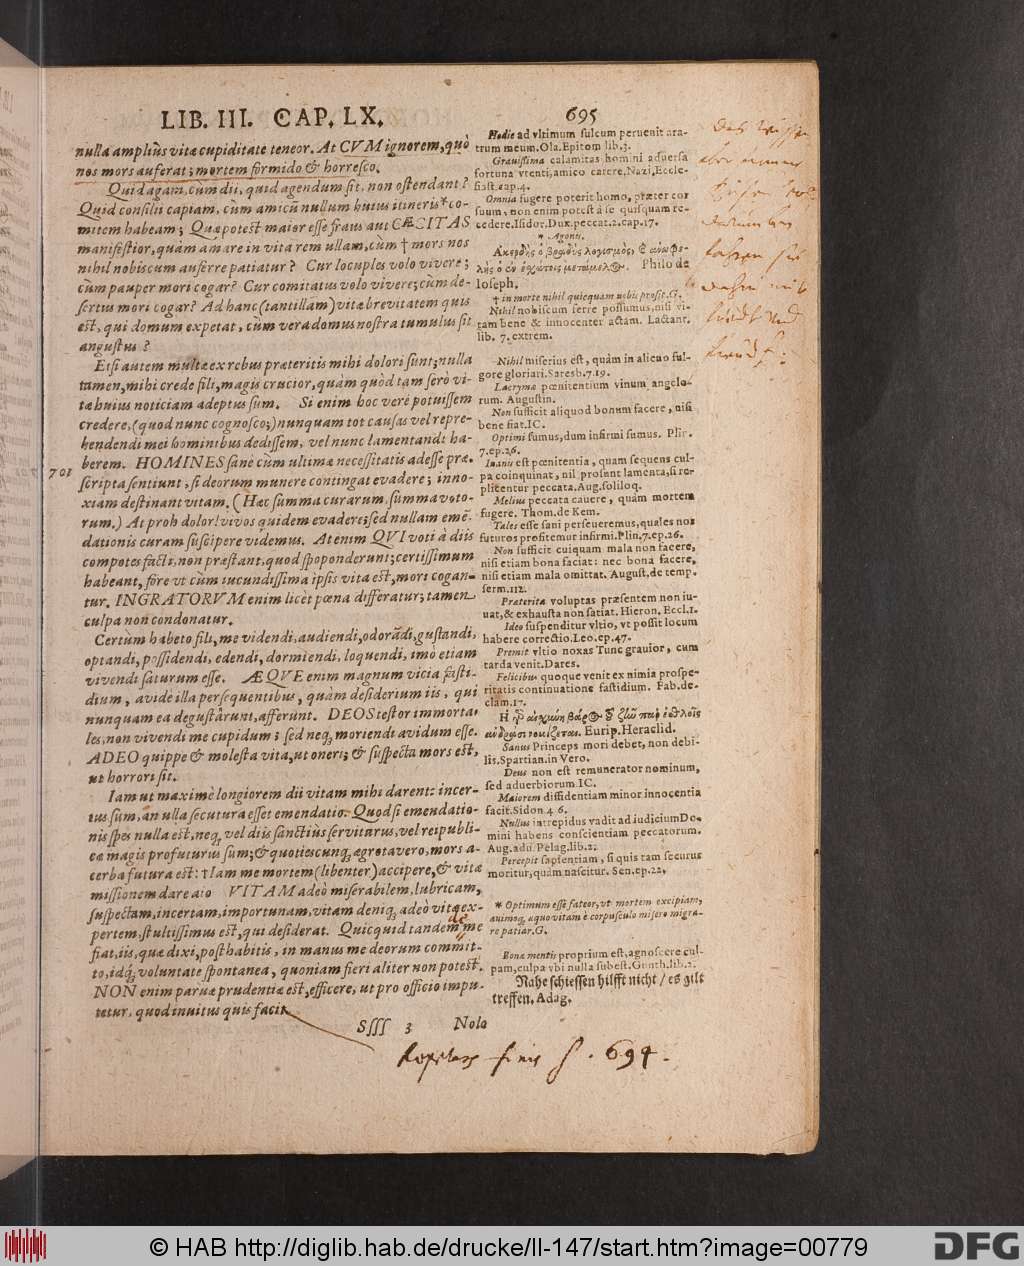 LIB. III. CAP. LX.
695
nulla ampliùs vitæ cupiditate teneor. At CVM ignorem, quò
nos mors auferat; mortem formido & horresco.
Quid agam, cùm dii, quid agendum sit, non ostendant?
Quid consilii captam, cùm amicũ nullum huius itineris * co-
mitem habeam; Quæ potest maior esse fraus aut CÆCITAS
manifestior, quàm amare in vita rem ullam, cùm † mors nos
nihil nobiscum auferre patiatur? Cur locuples volo vivere;
cùm pauper mori cogar? Cur comitatus volo vivere; cùm de-
sertus mori cogar? Ad hanc (tantillam) vitæ brevitatem quis
est, qui domum expetat, cùm vera domus nostra tumulus sit
angustus?
Etsi autem multa ex rebus præteritis mihi dolori sunt; nulla
tamen, mihi crede fili, magis crucior, quàm quòd tam serò vi-
tæ huius noticiam adeptus sum. Si enim hoc verè potuissem
credere, (quod nunc cognosco;) nunquam tot causas vel repre-
hendendi mei hominibus dedissem, vel nunc lamentandi ha-
berem. HOMINES sanè cùm ultimæ necessitatis adesse præ-
701
scripta sentiunt, si deorum munere contingat evadere; inno-
xiam destinant vitam. (Hæc summa curarum, summa voto-
rum.) At proh dolor! vivos quidem evadere; sed nullam emẽ-
dationis curam suscipere videmus. At enim QVI voti à diis
compotes facti, non præstant, quod spoponderunt; certissimum
habeant, fore ut cùm iucundissima ipsis vita est, mori cogan-
tur. INGRATORVM enim licèt pœna differatur; tamen
culpa non condonatur.
Certùm habeto fili, me videndi, audiendi, odorãdi, gustandi,
optandi, possidendi, edendi, dormiendi, loquendi, imò etiam
vivendi saturum esse. ÆQVE enim magnum vicia fasti-
dium, avidè illa persequentibus, quàm desiderium iis, qui
nunquam ea degustârunt, afferunt. DEOS testor immorta-
les, non vivendi me cupidum; sed neq; moriendi avidum esse.
ADEO quippe & molesta vita, ut oneri; & suspecta mors est,
ut horrori sit.
Iam ut maximè longiorem dii vitam mihi darent: incer-
tus sum, an ulla secutura esset emendatio. Quod si emendatio-
nis spes nulla est, neq; vel diis sanctiùs servitarus, vel reipubli-
cæ magis profuturus sum; & quotiescunq; ægrotavero, mors a-
cerba futura est: † Iam me mortem (libenter) accipere, & vitæ
missionem dare aio VITAM adeò miserabilem, lubricam,
suspectam, incertam, importunam, vitam deniq; adeò vitæ ex-
pertem, stultissimus est, qui desiderat. Quicquid tandem de me
fiat, iis, quæ dixi, posthabitis, in manus me deorum commit-
to, idq; voluntate spontanea, quoniam fieri aliter non potest.
NON enim parvæ prudentiæ est, efficere, ut pro officio impu-
tetur, quod invitus quis facit.
Hodie ad vltimum sulcum peruenit ara-
trum meum. Ola. Epitom lib. 3.
Gravissima calamitas homini aduersa
fortuna vtenti, amico carere, Nazi, Eccle-
siast. cap. 4.
Omnia fugere poterit homo, præter cor
suum, non enim potest à se quisquam re-
cedere. Isidor. Dux. peccat. 2. cap. 17.
* Agonis.
Philo de
Ioseph.
† in morte nihil quicquam nobis prosit. G.
Nihil nobiscum ferre possumus, nisi vi-
tam bene & innocenter actam. Lactanr.
lib. 7. extrem.
Nihil miserius est, quàm in alieno ful-
gore gloriari. Saresb. 7. 19.
Lacrymæ pœnitentium vinum angelo-
rum. Augustin.
Non sufficit aliquod bonum facere, nisi
bene fiat. IC.
Optimi sumus, dum infirmi sumus. Plin.
7. ep. 26.
Inanis est pœnitentia, quam sequens cul-
pa coinquinat, nil prosunt lamenta, si re-
plicentur peccata. Aug. soliloq.
Melius peccata cauere, quàm mortem
fugere. Thom. de Kem.
Tales esse sani perseueremus, quales nos
futuros profitemur infirmi. Plin. 7. ep. 26.
Non sufficit cuiquam mala non facere,
nisi etiam bona faciat: nec bona facere,
nisi etiam mala omittat. August. de temp.
serm. 112.
Præterita voluptas præsentem non iu-
uat, & exhausta non satiat. Hieron. Eccl. 1.
Ideo suspenditur vltio, vt possit locum
habere correctio. Leo. ep. 47.
Premit vltio noxas Tunc grauior, cum
tarda venit. Dares.
Felicibus quoque venit ex nimia prospe-
ritatis continuatione fastidium. Fab. de-
clam. 17.
Eurip. Heraclid.
Sanus Princeps mori debet, non debi-
lis. Spartian. in Vero.
Deus non est remunerator nominum,
sed aduerbiorum. IC.
Maiorem diffidentiam minor innocentia
facit. Sidon 4 6.
Nullus intrepidus vadit ad iudicium Do-
mini habens conscientiam peccatorum.
Aug. adu. Pelag. lib. 2.
Percepit sapientiam, si quis tam securus
moritur, quàm nascitur. Sen. ep. 22.
* Optimum esse fateor, vt mortem excipiam,
animoq; æquo vitam è corpusculo misero migra-
re patiar. G.
Bonæ mentis proprium est, agnoscere cul-
pam, culpa vbi nulla subest. Gunth. lib. 2.
Nahe schiessen hilfft nicht / es gilt
treffen. Adag.
Sſſſ 3
Nole
finis f. 694.
© HAB http://diglib.hab.de/drucke/ll-147/start.htm?image=00779
DFG